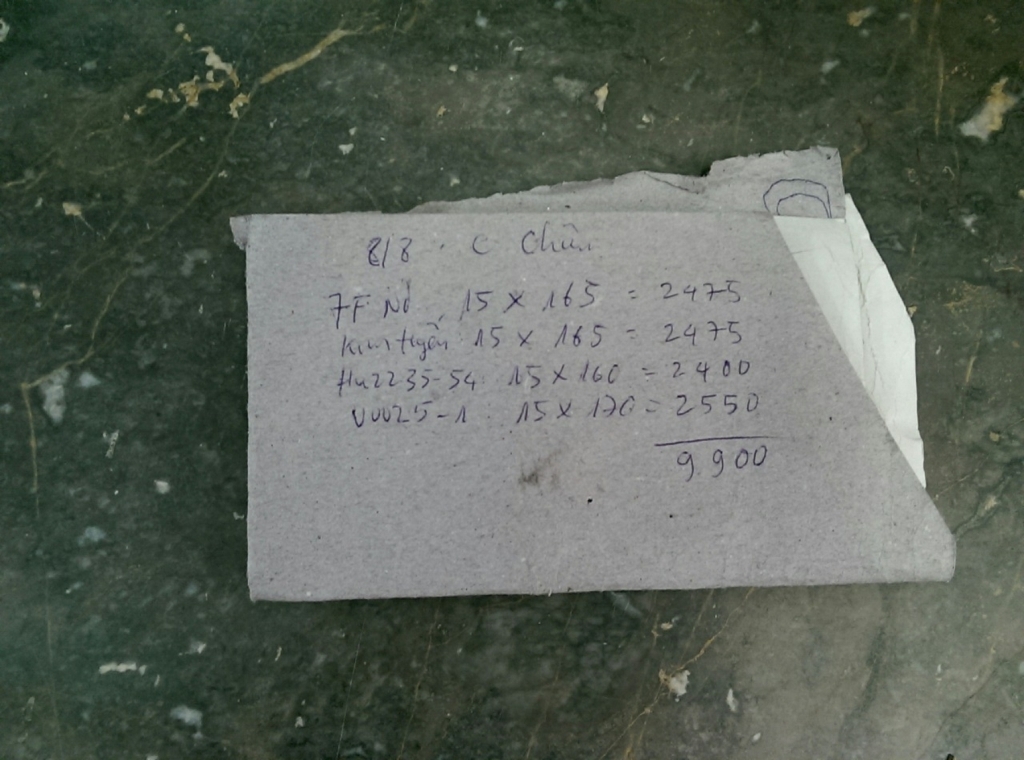 8/8 . C Chân
7F Nơ 15 x 165 = 2475
Kim tuyến 15 x 165 = 2475
Hu2235-54 15 x 160 = 2400
VU025-1 15 x 170 = 2550
9900